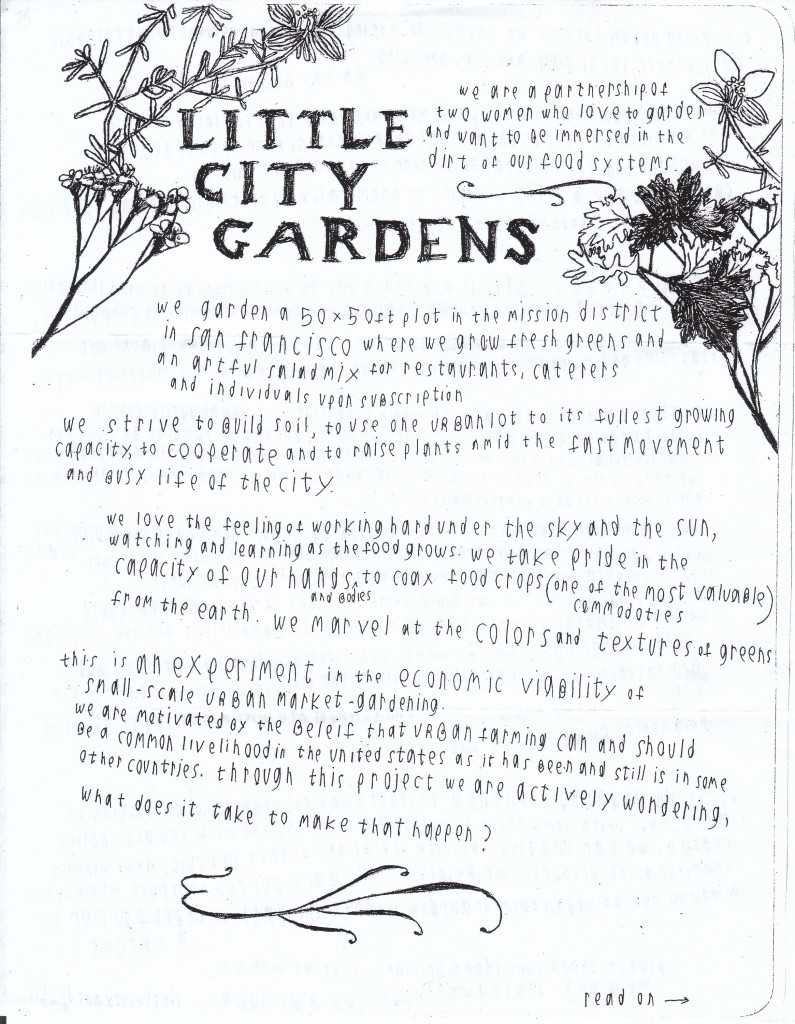 LITTLE
CITY
GARDENS
we are a partnership of
two women who love to garden
and want to be immersed in the
dirt of our food systems.
we garden a 50 x 50 ft plot in the mission district
in san francisco where we grow fresh greens and
an artful salad mix for restaurants, caterers
and individuals upon subscription
we strive to build soil, to use one urban lot to its fullest growing
capacity, to cooperate and to raise plants amid the fast movement
and busy life of the city.
we love the feeling of working hard under the sky and the sun,
watching and learning as the food grows. we take pride in the
capacity of our hands ^ and bodies, to coax food crops (one of the most valuable)
commodoties
from the earth. we marvel at the colors and textures of greens
this is an experiment in the economic viability of
small-scale urban market-gardening.
we are motivated by the beleif that urban farming can and should
be a common livelihood in the united states as it has been and still is in some
other countries. through this project we are actively wondering,
what does it take to make that happen?
read on →